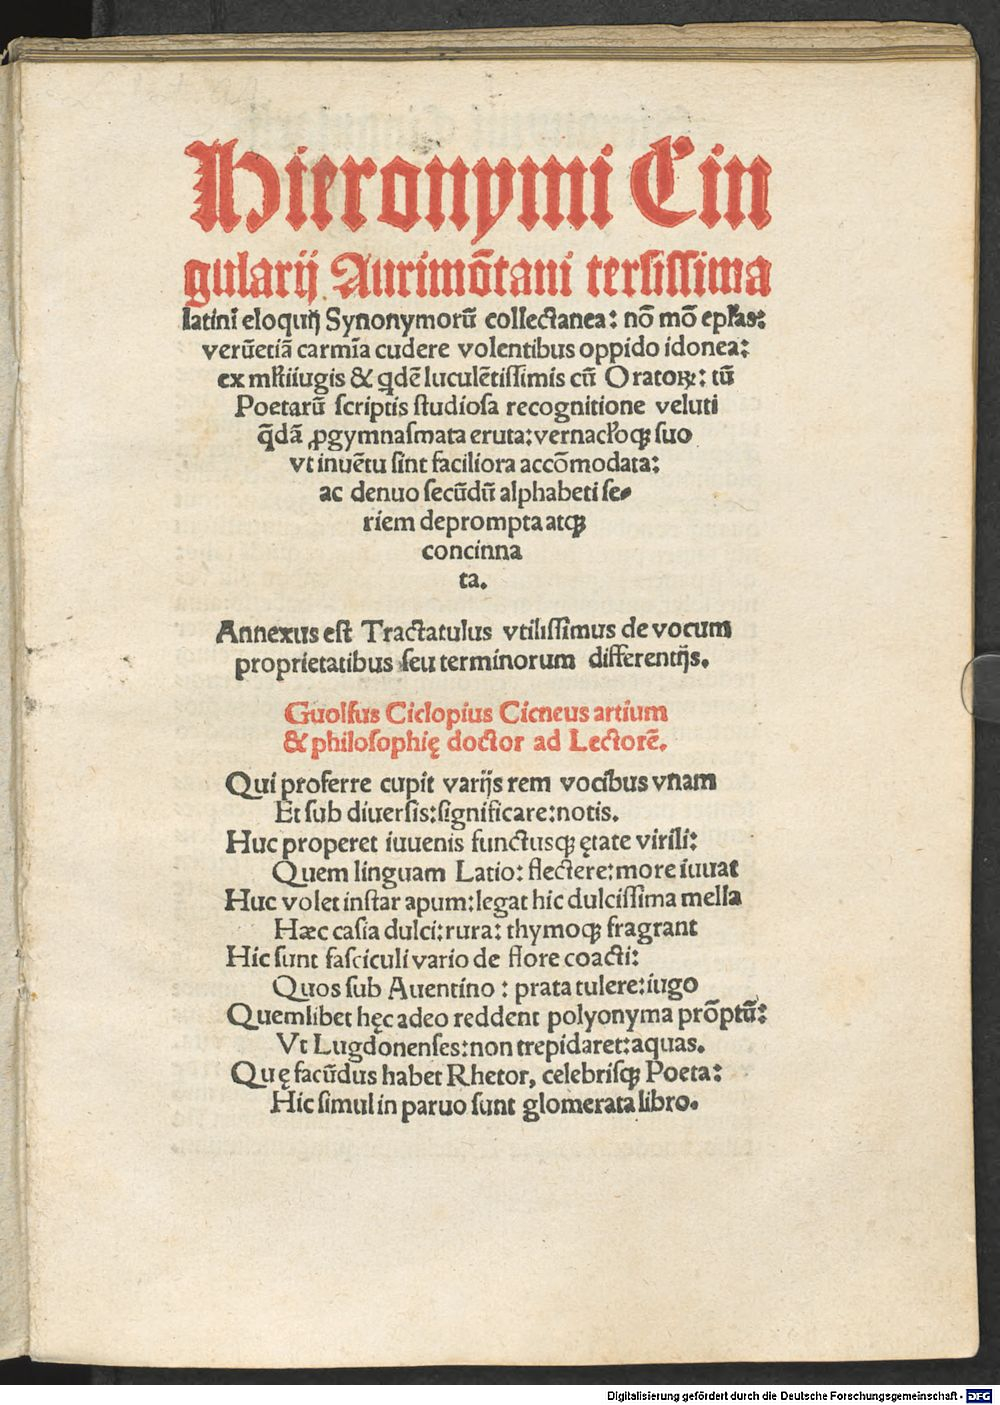 Hieronymi Cin
gularij Aurimōtani tersissima
latini eloquij Synonymorū collectanea: nō mō epɫas:
verūetiā carmīa cudere volentibus oppido idonea:
ex mɫtiiugis & qdē luculētissimis cū Oratoꝝ: tū
Poetarū scriptis studiosa recognitione veluti
q̄dā ꝓgymnasmata eruta: vernacɫoqꝫ suo
vt inuētu sint faciliora accōmodata:
ac denuo secūdū alphabeti se-
riem deprompta atqꝫ
concinna
ta.
Annexus est Tractatulus vtilissimus de vocum
proprietatibus seu terminorum differentijs.
Guolfus Ciclopius Cicneus artium
& philosophię doctor ad Lectorē.
Qui proferre cupit varijs rem vocibus vnam
Et sub diuersis: significare: notis.
Huc properet iuuenis functusqꝫ ętate virili:
Quem linguam Latio: flectere: more iuuat
Huc volet instar apum: legat hic dulcissima mella
Hæc casia dulci: rura: thymoqꝫ fragrant
Hic sunt fasciculi vario de flore coacti:
Quos sub Auentino: prata tulere: iugo
Quemlibet hęc adeo reddent polyonyma prōptū:
Vt Lugdonenses: non trepidaret: aquas.
Quę facūdus habet Rhetor, celebrisqꝫ Poeta:
Hic simul in paruo sunt glomerata libro.
Digitalisierung gefördert durch die Deutsche Forschungsgemeinschaft - DFG